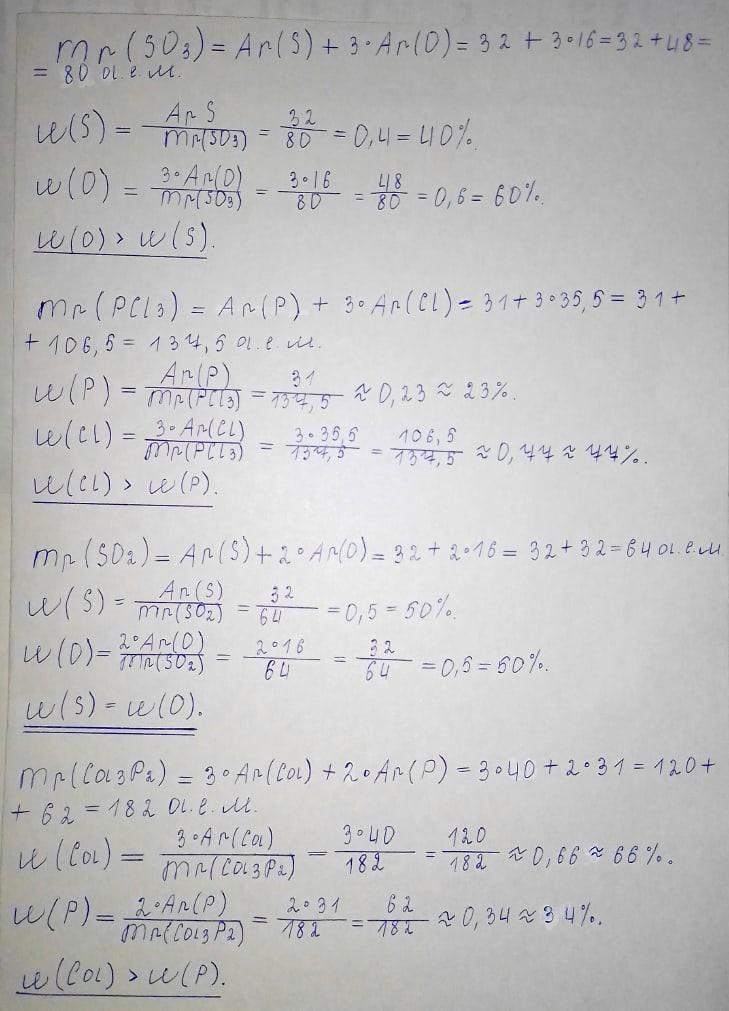 Mr(SO₃) = Ar(S) + 3·Ar(O) = 32 + 3·16 = 32 + 48 =
= 80 а.е.м.
w(S) = Ar S / Mr(SO₃) = 32/80 = 0,4 = 40%.
w(O) = 3·Ar(O) / Mr(SO₃) = 3·16/80 = 48/80 = 0,6 = 60%.
w(O) > w(S).
Mr(PCl₃) = Ar(P) + 3·Ar(Cl) = 31 + 3·35,5 = 31 +
+ 106,5 = 137,5 а.е.м.
w(P) = Ar(P) / Mr(PCl₃) = 31/137,5 ≈ 0,23 ≈ 23%.
w(Cl) = 3·Ar(Cl) / Mr(PCl₃) = 3·35,5/137,5 = 106,5/137,5 ≈ 0,77 ≈ 77%.
w(Cl) > w(P).
Mr(SO₂) = Ar(S) + 2·Ar(O) = 32 + 2·16 = 32 + 32 = 64 а.е.м
w(S) = Ar(S) / Mr(SO₂) = 32/64 = 0,5 = 50%.
w(O) = 2·Ar(O) / Mr(SO₂) = 2·16/64 = 32/64 = 0,5 = 50%.
w(S) = w(O).
Mr(Ca₃P₂) = 3·Ar(Ca) + 2·Ar(P) = 3·40 + 2·31 = 120 +
+ 62 = 182 а.е.м.
w(Ca) = 3·Ar(Ca) / Mr(Ca₃P₂) = 3·40/182 = 120/182 ≈ 0,66 ≈ 66%.
w(P) = 2·Ar(P) / Mr(Ca₃P₂) = 2·31/182 = 62/182 ≈ 0,34 ≈ 34%.
w(Ca) > w(P).